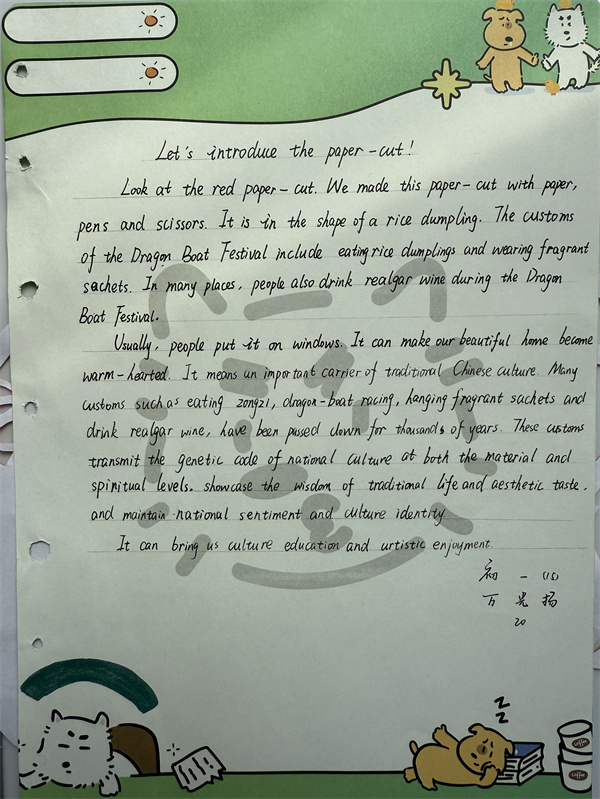 Let's introduce the paper-cut!
Look at the red paper-cut. We made this paper-cut with paper,
pens and scissors. It is in the shape of a rice dumpling. The customs
of the Dragon Boat Festival include eating rice dumplings and wearing fragrant
sachets. In many places, people also drink realgar wine during the Dragon
Boat Festival.
Usually, people put it on windows. It can make our beautiful home become
warm-hearted. It means un important carrier of traditional Chinese culture. Many
customs such as eating zongzi, dragon-boat racing, hanging fragrant sachets and
drink realgar wine, have been passed down for thousands of years. These customs
transmit the genetic code of national culture at both the material and
spiritual levels. showcase the wisdom of traditional life and aesthetic taste.
and maintain national sentiment and culture identity
It can bring us culture education and urtistic enjoyment.
初一(15)
万 扬
20
z
z
Coffee
Coffee